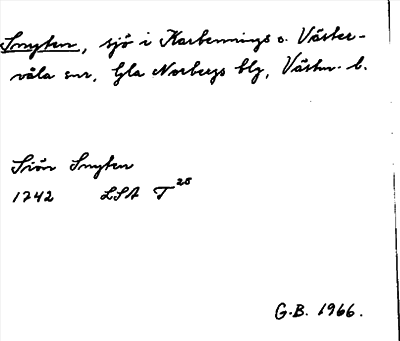 Snyten, sjö i Karbennings o. Väster-
våla snr, Gla Norbergs blg, Västm. l.
Siön Snyten
1742 LSA T 28
G.B. 1966.